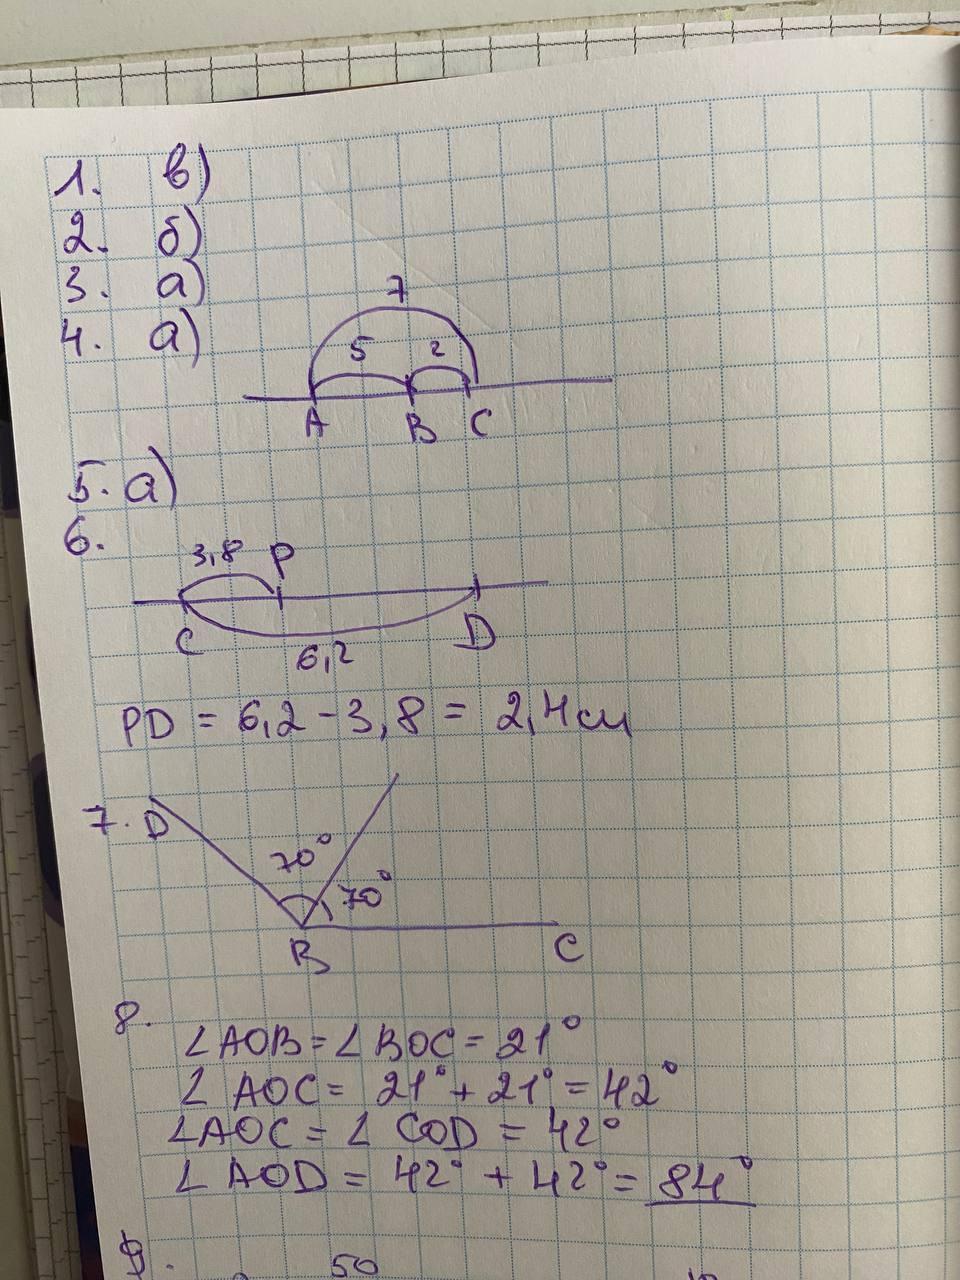 1. в)
2. б)
3. а)
4. а)
7
5 2
A B C
5. а)
6.
3,8 P
C D
6,2
PD = 6,2 - 3,8 = 2,4 см
7. D
70°
70°
B C
8.
∠AOB = ∠BOC = 21°
∠AOC = 21° + 21° = 42°
∠AOC = ∠COD = 42°
∠AOD = 42° + 42° = 84°
9. 50